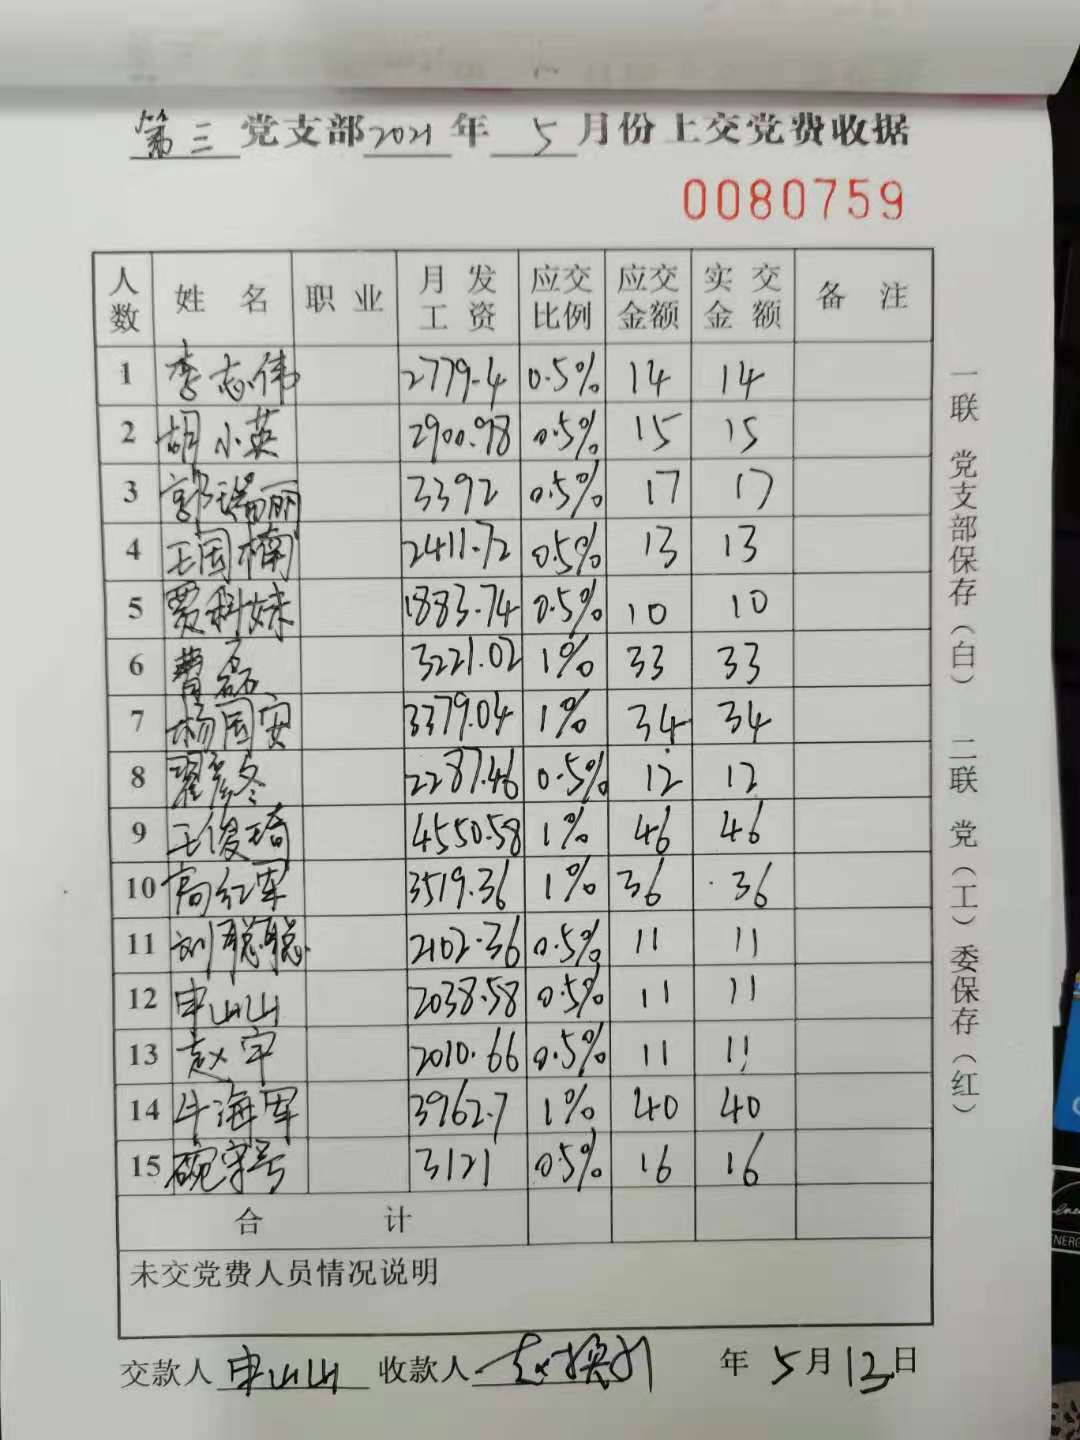 第三党支部2021年5月份上交党费收据
0080759
人数 姓名 职业 月发工资 应交比例 应交金额 实交金额 备注
1 李志伟 2779.4 0.5% 14 14
2 胡小英 2900.98 0.5% 15 15
3 郭瑞丽 3392 0.5% 17 17
4 王国楠 2411.72 0.5% 13 13
5 贾科妹 1883.74 0.5% 10 10
6 曹磊 3221.02 1% 33 33
7 杨国安 3379.04 1% 34 34
8 翟彦冬 2287.46 0.5% 12 12
9 王俊琦 4550.58 1% 46 46
10 高红军 3519.36 1% 36 36
11 刘聪聪 2102.36 0.5% 11 11
12 申山山 2038.58 0.5% 11 11
13 赵宇 2010.66 0.5% 11 11
14 牛海军 3962.7 1% 40 40
15 3121 0.5% 16 16
合计
未交党费人员情况说明
交款人 申山山 收款人 赵换引 年5月13日
一联 党支部保存(白) 二联 党(工)委保存(红)